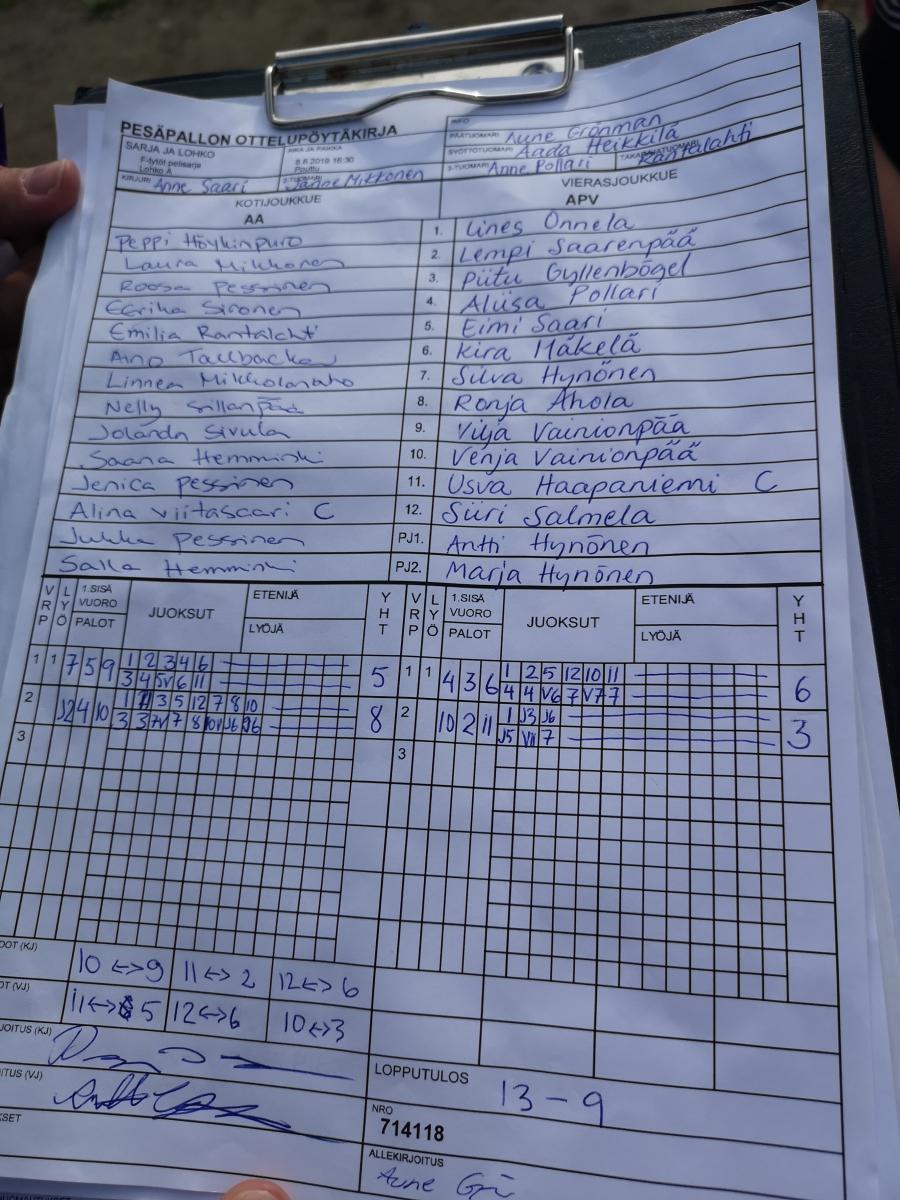 PESÄPALLON OTTELUPÖYTÄKIRJA
INFO
PÄÄTUOMARI Aune Grönman
SYÖTTÖTUOMARI Aada Heikkilä
SARJA JA LOHKO
F-tytöt pelisarja
Lohko A
AIKA JA PAIKKA
8.6.2019 16:30
Pouttu
Anne Pollari TAKARAJATUOMARI Rantalahti
KIRJURI Anne Saari
2-TUOMARI Janne Mikkonen
KOTIJOUKKUE
AA
VIERASJOUKKUE
APV
Peppi Höykinpuro 1. Lines Onnela
Laura Mikkonen 2. Lempi Saarenpää
Roosa Pessinen 3. Piitu Gyllenbögel
Eerika Sironen 4. Aliisa Pollari
Emilia Rantalahti 5. Eimi Saari
Aino Tallbacka 6. Kira Mäkelä
Linnea Mikkolanaho 7. Silva Hynönen
Nelly Sillanpää 8. Ronja Ahola
Jolanda Sivula 9. Vilja Vainionpää
Saana Hemminki 10. Venja Vainionpää
Jenica Pessinen 11. Usva Haapaniemi C
Alina Viitasaari C 12. Siiri Salmela
Jukka Pessinen PJ1. Antti Hynönen
Salla Hemminki PJ2. Marja Hynönen
VRP LYÖ 1.SISÄ VUORO PALOT JUOKSUT ETENIJÄ LYÖJÄ YHT VRP LYÖ 1.SISÄ VUORO PALOT JUOKSUT ETENIJÄ LYÖJÄ YHT
1 1 7 5 9 1 2 3 4 6 5 1 1 4 3 6 1 2 5 12 10 11 6
3 4 5V 6 11 4 4 V6 7 V7 7
2 J2 4 10 1 3 5 12 7 8 10 8 2 10 2 11 1 J3 J6 3
3 3 7V 7 8 10V J6 J6 J5 V11 7
3 3
10 <-> 9 11 <-> 2 12 <-> 6
11 <-> 5 12 <-> 6 10 <-> 3
LOPPUTULOS 13 - 9
NRO
714118
ALLEKIRJOITUS
Aune Grö